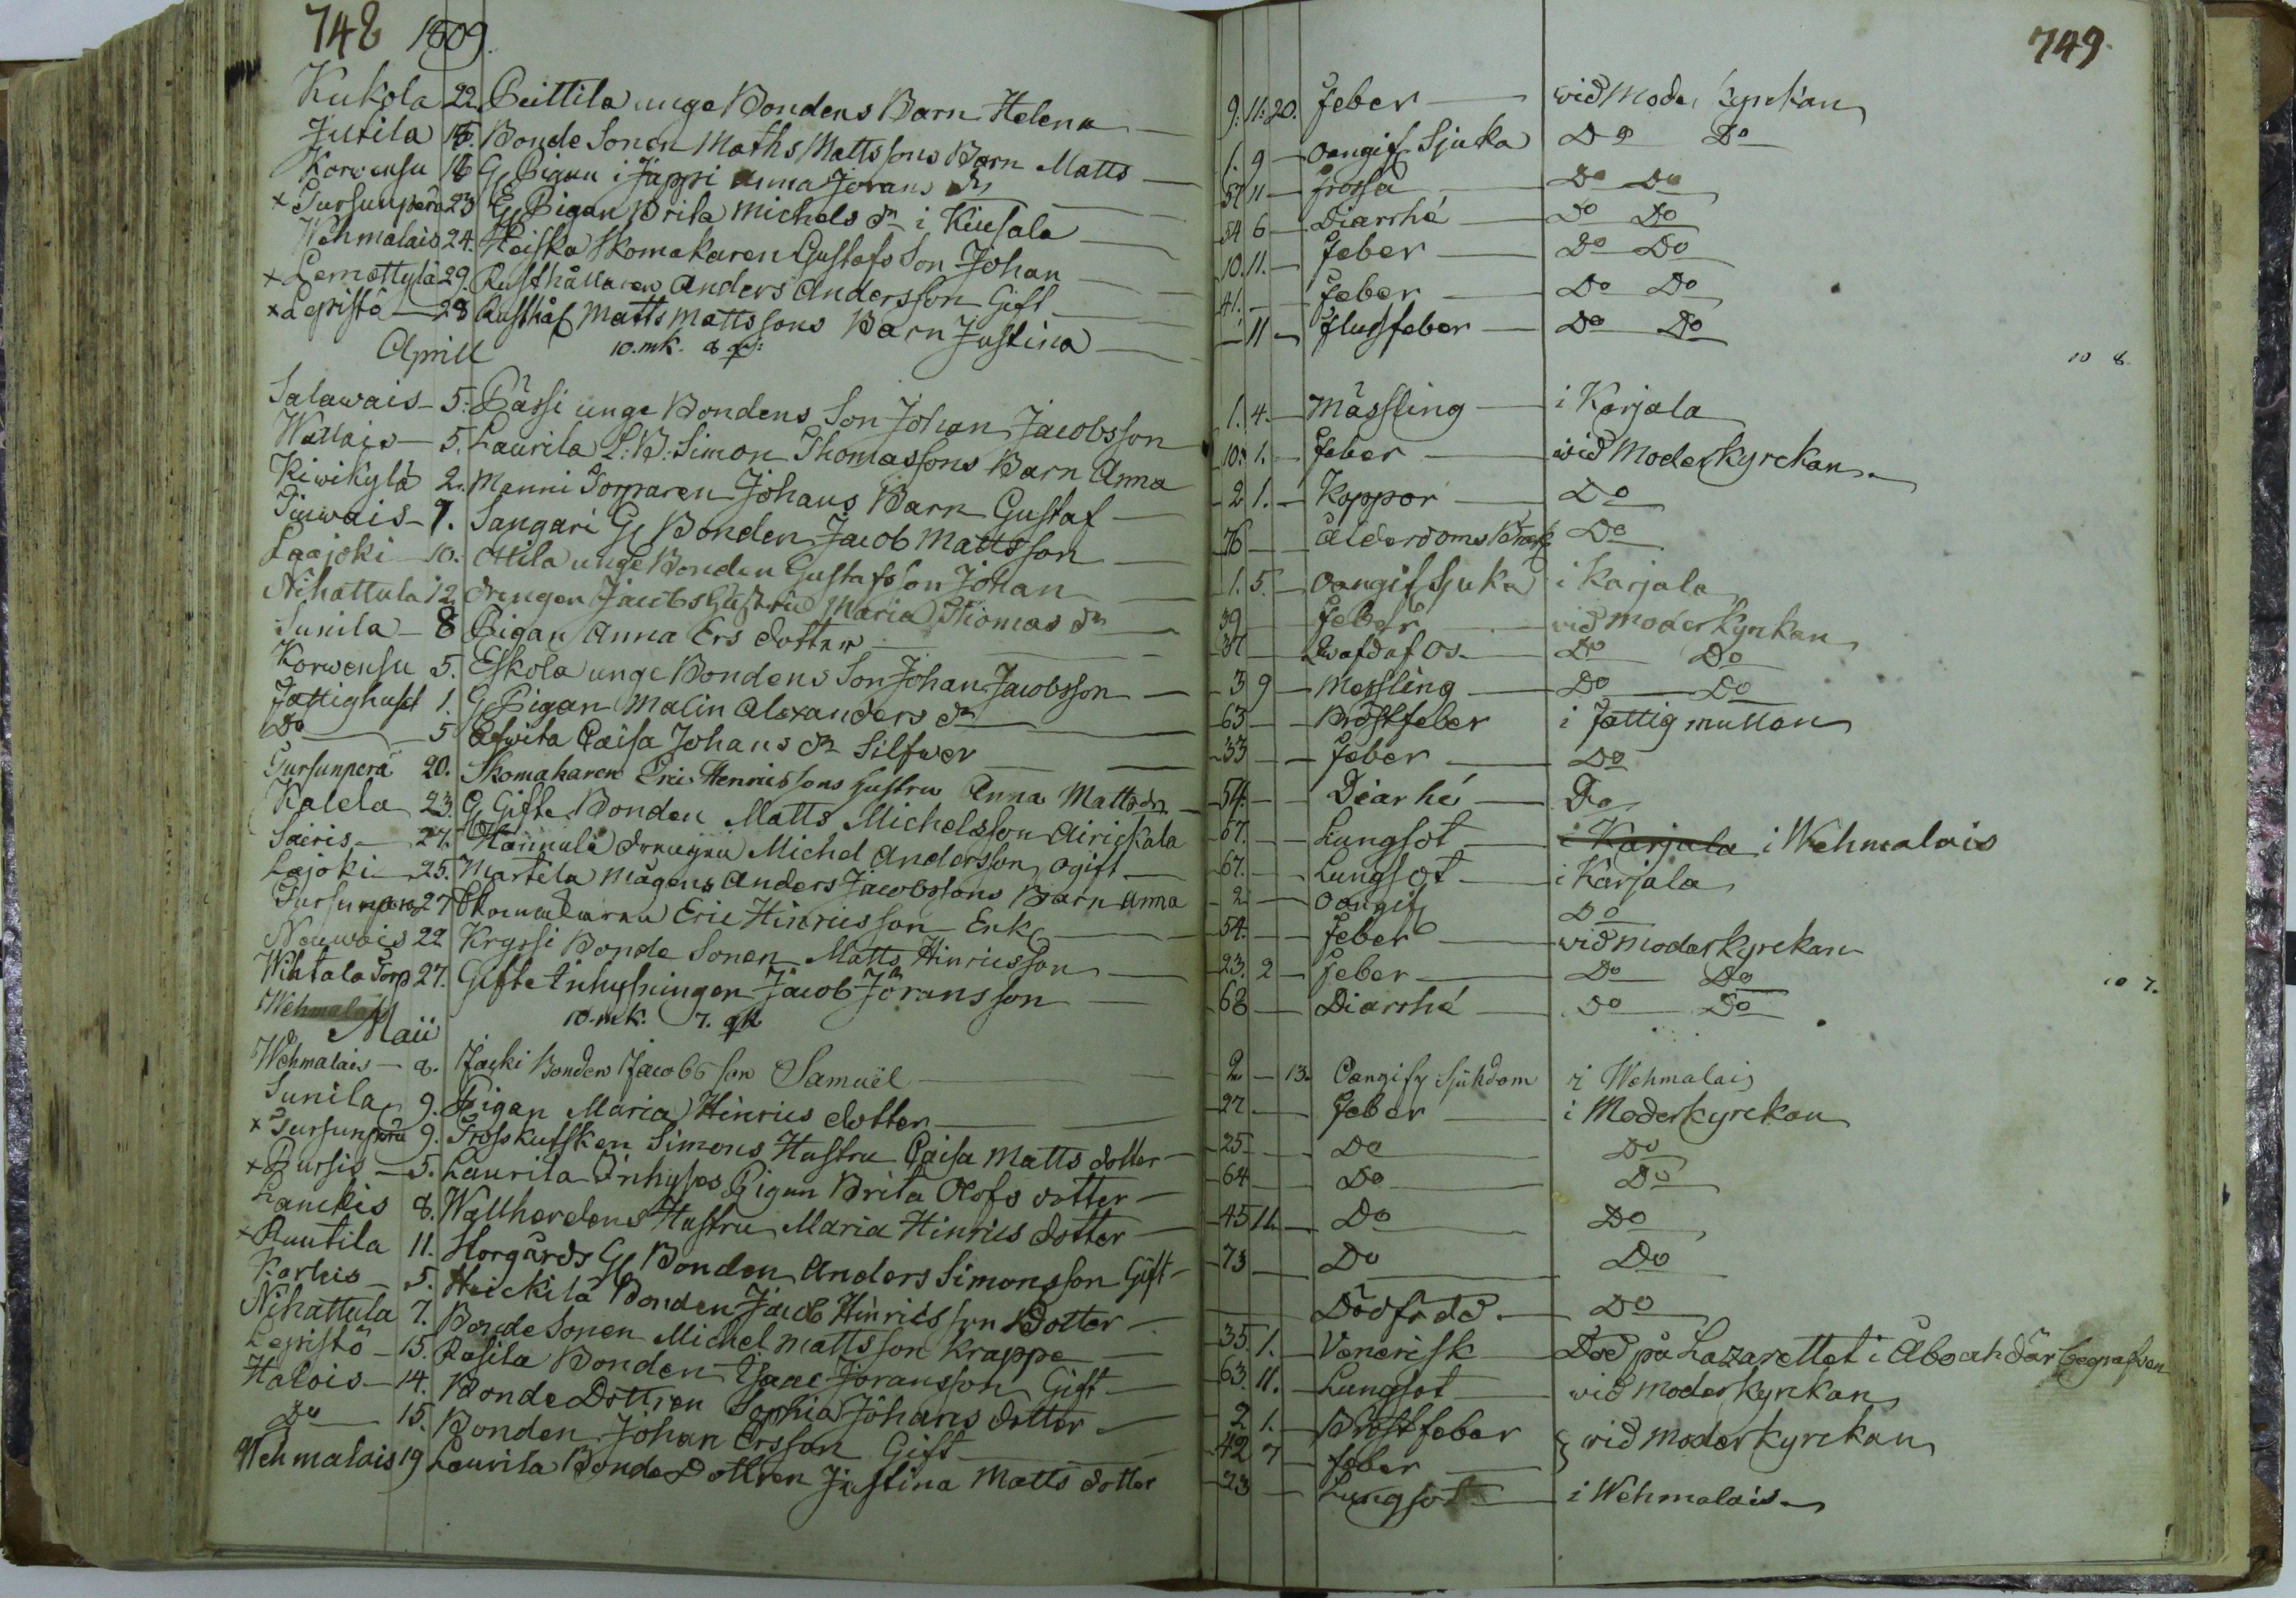 748 1809. 749.
Kukola 22. Peittila unge Bondens Barn Helena — 9. 11. 20. Feber — wid Moder kyrckan
Jutila 15. Bonde Sonen Maths Mattssons Barn Matts — 1. 9 — oangif Sjuka Do Do
Korwensu 18 G Pigan i Jäppi Anna Jörans dr — 57 11 — frossa — Do Do
x Tursunperä 23 G Pigan Brita Michels dr i Kiusala — 54 6 — Diarrhé — Do Do
Wehmalais 24. Heiska Skomakaren Gustafs Son Johan — 10. 11. — Feber — Do Do
x Lemettylä 29. Rusthållaren Anders Andersson Gift — 41. — Feber — Do Do
x Lepistö 28 Rusthål Matts Mattssons Barn Justina — 11 — flussfeber — Do Do
Aprill 10. mk. 8 qk: 10 8
Salawais — 5. Pässi unge Bondens Son Johan Jacobsson 1. 4. — Mässling — i Karjala
Wallais — 5. Laurila L: B: Simon Thomassons Barn Anna 10. 1. — Feber — wid Moderkyrckan
Kiwikylä 2. Manni Torparen Johans Barn Gustaf — 2 1. — Koppor — Do
Tiuwais — 7. Sangari G Bonden Jacob Mattsson — 76 — ålderdoms Bräck Do
Laajoki — 10. Attila unge Bonden Gustafsson Johan — 1. 5. — oangif Sjuka i Karjala
Nihattula 12. drengen Jacobs Hustru Maria Thomas dr — 39 — Feber — wid moderkyrckan
Sunila — 8 Pigan Anna Ers dotter — 37 — Qwafd af Os. — Do Do
Korwensu 5. Eskola unge Bondens Son Johan Jacobsson — 3 9 — Messling — Do — Do
Fattighuset 1. G Pigan Malin Alexanders dr — 63 — Bröstfeber i Fattig mullen
Do — 5 Afwita Caisa Johans dr Silfwer — 33 — Feber — Do
Tursunperä 20. Skomakaren Eric Henricssons Hustru Anna Matts dr — 54. — Diarhé — Do
Kalela 23. G Gifte Bonden Matts Michelsson Airickala 67. — Lungsot — i Karjala i Wehmalais
Sairis — 27. Hannula drengen Michel Andersson ogift — 67. — Lungsot — i Karjala
Lajoki — 25. Martela Mågens Anders Jacobssons Barn Anna — 2 — oangif Do
Tursunperä 27 Skomakaren Eric Hinricsson Enkl — 54. — Feber — wid moderkyrckan
Nouwais 22 Kryssi Bonde Sonen Matts Hinricsson — 23. 2 — Feber — Do Do
Wihtala Torp 27. Gifte Inhysingen Jacob Jöransson — 68 — Diarrhé — Do Do
Wehmalais 10. mk. 7. qk 10 7.
Maii
Wehmalais — 8. Jaski Bonden Jacobs Son Samuël — 2. — 13. Oangify Sjukdom i Wehmalais
Sunila 9. Pigan Maria Hinrics dotter — 27 — Feber — i Moderkyrckan
x Tursunperä 9. Trosskusken Simons Hustru Caisa Matts dotter — 25 — Do — Do
x Pursis — 5. Laurila Inhyses Pigan Brita Olofs dotter — 64 — Do — Do
Lanckis 8. Wallherdens Hustru Maria Hinrics dotter — 45 11. — Do — Do
x Ruutila 11. Storgårds G Bonden Anders Simonsson Gift — 73 — Do — Do
Karhis — 5. Heickilä Bonden Jacob Hinricsson Dotter — Dödfödd. — Do
Nihattula 7. Bonde Sonen Michel Mattsson Krappe — 35. 1. — Venerisk — Död på Lazarettet i Åbo och där begrafven
Lepistö — 15. Rasila Bonden Isaac Jöransson Gift — 63. 11. — Lungsot — wid moderkyrckan
Halois — 14. Bonde Dottren Sophia Johans dotter — 2 1. — Bröstfeber
Do — 15. Bonden Johan Ersson Gift — 42 7 — feber — } wid moderkyrckan
Wehmalais 19 Laurila Bonde Dottren Justina Matts dotter 23 — Lungsot — i Wehmalais